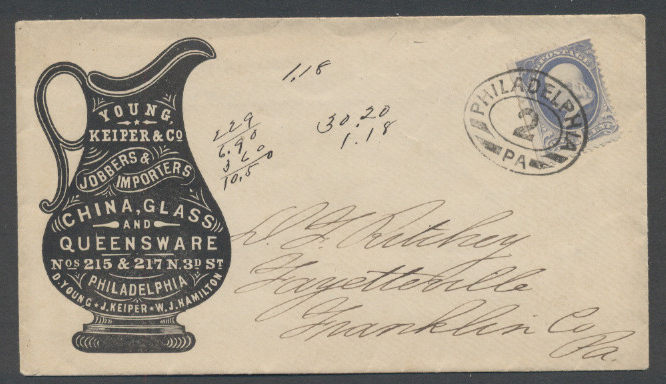 YOUNG,
KEIPER & Co
JOBBERS &
IMPORTERS
CHINA, GLASS
AND
QUEENSWARE
Nos 215 & 217 N. 3D ST
PHILADELPHIA
D. YOUNG • J. KEIPER • W. J. HAMILTON
1.18
229
6.90
3 60
10,50
30.20
1.18
POSTAGE
PHILADELPHIA
2
PA
D. F. Ritchey
Fayetteville
Franklin Co
Pa.